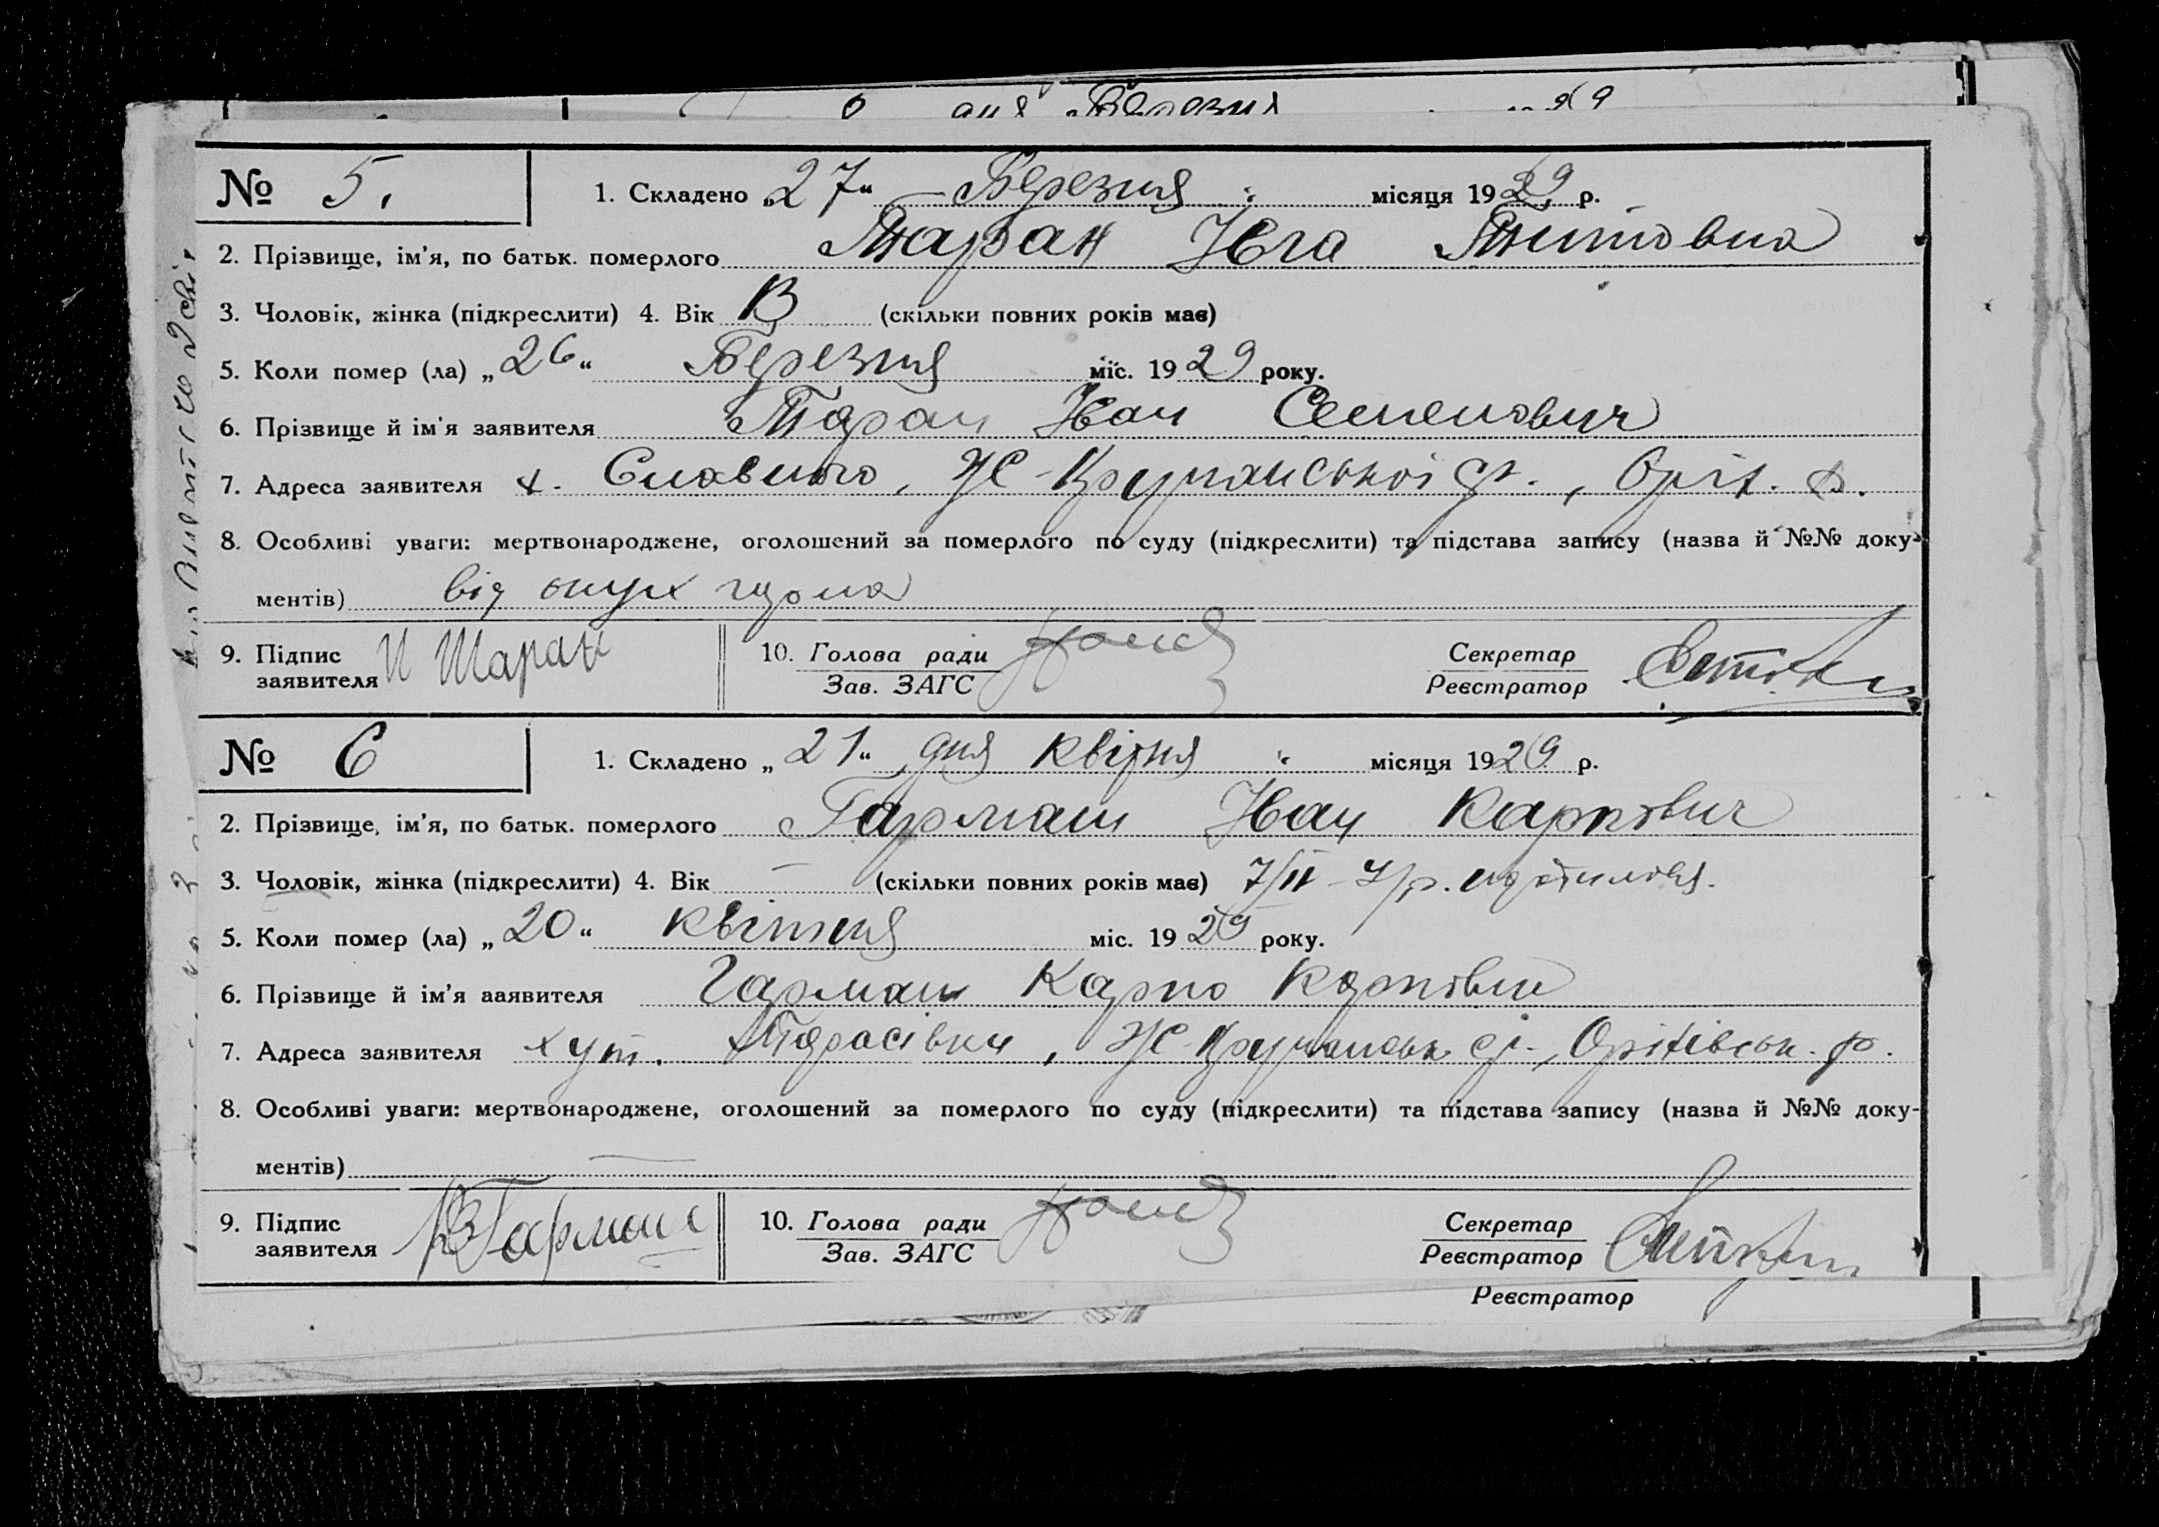 дня Березня 29
№ 5. 1. Складено „27“ Березня місяця 1929 р.
2. Прізвище, ім'я, по батьк. померлого Таран Ївга Титовна
3. Чоловік, жінка (підкреслити) 4. Вік (скільки повних років має)
5. Коли помер (ла) „26“ Березня міс. 1929 року.
6. Прізвище й ім'я заявителя Таран Іван Семенович
7. Адреса заявителя х. Славного, Ж-Кручанської с/р., Оріх. р.
8. Особливі уваги: мертвонароджене, оголошений за померлого по суду (підкреслити) та підстава запису (назва й №№ доку-
ментів) від опух
9. Підпис заявителя И Таран 10. Голова ради Секретар
Зав. ЗАГС Реєстратор
№ 6 1. Складено „21“ дня квітня місяця 1929 р.
2. Прізвище, ім'я, по батьк. померлого Гармаш Іван Карпович
3. Чоловік, жінка (підкреслити) 4. Вік — (скільки повних років має)
5. Коли помер (ла) „20“ квітня міс. 1929 року.
6. Прізвище й ім'я аявителя Гармаш Карпо Карпович
7. Адреса заявителя хут. Тарасівки, Ж-Кручанськ с/р., Оріхівськ. р.
8. Особливі уваги: мертвонароджене, оголошений за померлого по суду (підкреслити) та підстава запису (назва й №№ доку-
ментів) —
9. Підпис заявителя Гармаш 10. Голова ради Секретар
Зав. ЗАГС Реєстратор
Реєстратор